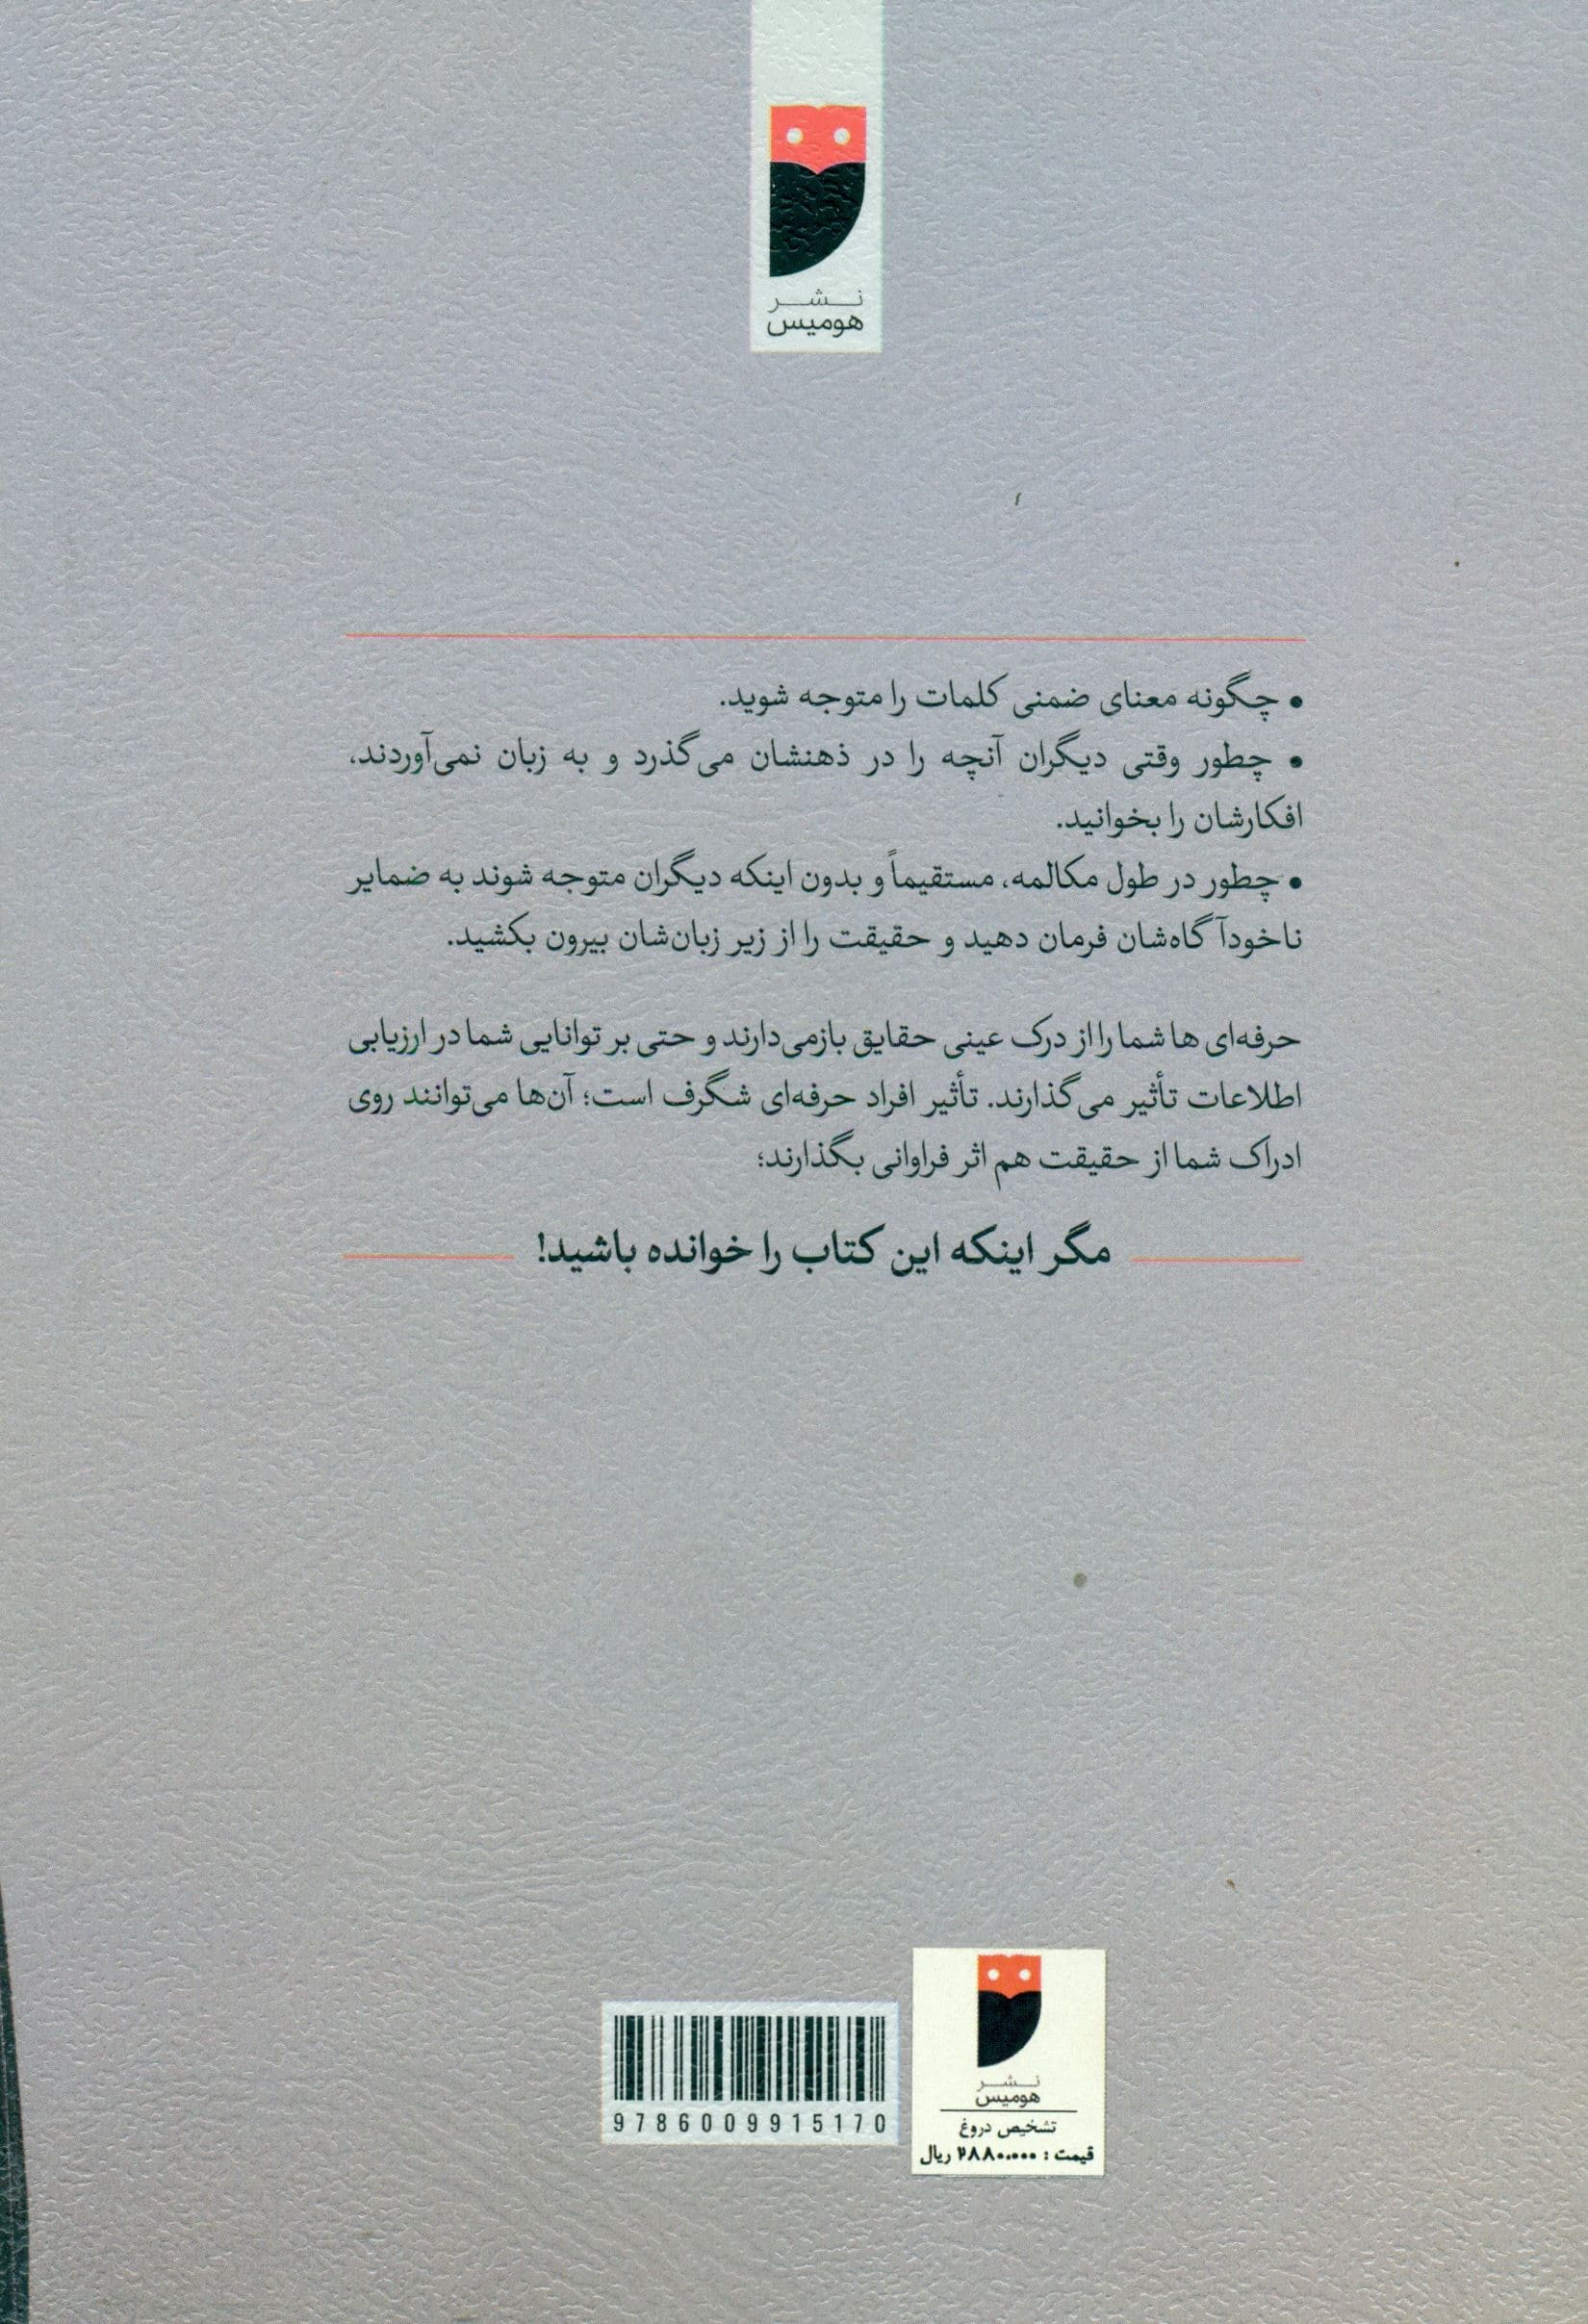 نشر
هومیس
• چگونه معنای ضمنی کلمات را متوجه شوید.
• چطور وقتی دیگران آنچه را در ذهنشان می‌گذرد و به زبان نمی‌آوردند،
افکارشان را بخوانید.
• چطور در طول مکالمه، مستقیماً و بدون اینکه دیگران متوجه شوند به ضمایر
ناخودآگاه‌شان فرمان دهید و حقیقت را از زیر زبان‌شان بیرون بکشید.
حرفه‌ای ها شما را از درک عینی حقایق بازمی‌دارند و حتی بر توانایی شما در ارزیابی
اطلاعات تأثیر می‌گذارند. تأثیر افراد حرفه‌ای شگرف است؛ آن‌ها می‌توانند روی
ادراک شما از حقیقت هم اثر فراوانی بگذارند؛
مگر اینکه این کتاب را خوانده باشید!
نشر
هومیس
تشخیص دروغ
قیمت : ۲۸۸۰۰۰۰ ریال
9786009915170